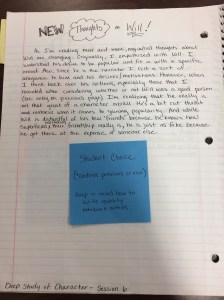 NEW Thoughts on Will!
As I'm reading more and more, my initial thoughts about
Will are changing. Originally, I empathized with Will. I
understood his desire to be popular and fit in with a specific
crowd. Also, since he is the narrator I felt a sort of
allegiance to him and his desires/motivations. However, when
I think back over his actions, especially those that I
troubled when considering whether or not Will was a good person
I'm realizing that he really is
not that great of a character at all. He's a bit cut throat
and ruthless when it comes to gaining popularity. And while
Will is distrustful of his new "friends" because he knows how
superficial their friendship really is, he is just as fake because
he got there at the expense of someone else.
Student Choice
(*continue previous or new)
Keep in mind how to
write quality
notebook entries.
Deep Study of Character - Session 6